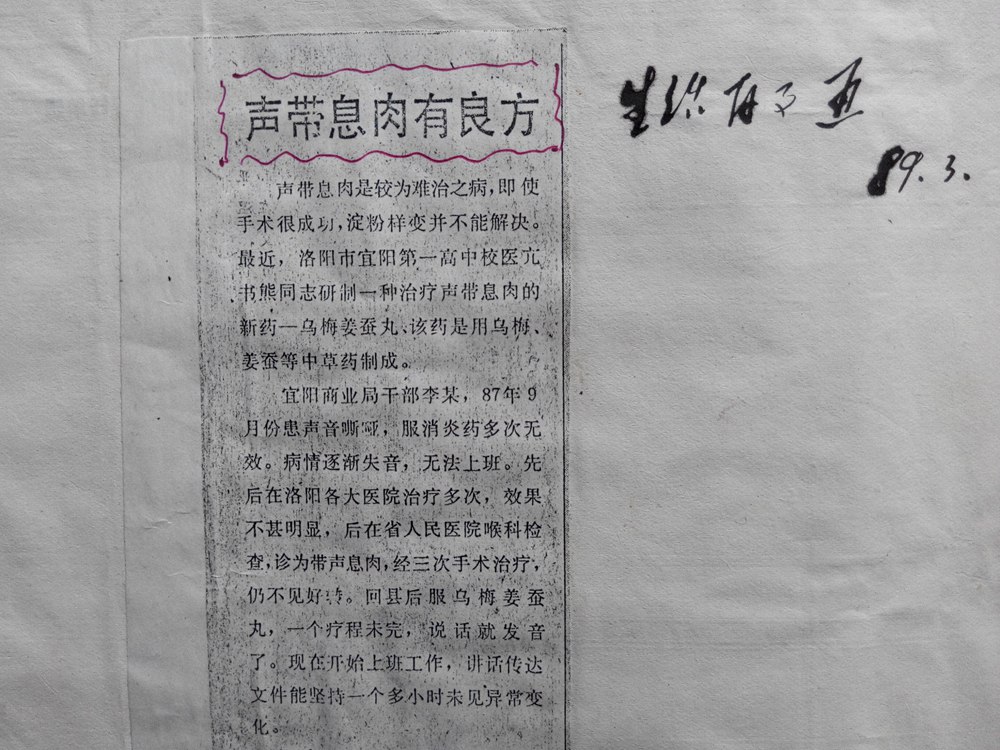 声带息肉有良方
声带息肉是较为难治之病,即使
手术很成功,淀粉样变并不能解决。
最近，洛阳市宜阳第一高中校医亢
书熊同志研制一种治疗声带息肉的
新药—乌梅姜蚕丸、该药是用乌梅、
姜蚕等中草药制成。
宜阳商业局干部李某，87年9
月份患声音嘶哑，服消炎药多次无
效。病情逐渐失音，无法上班。先
后在洛阳各大医院治疗多次，效果
不甚明显，后在省人民医院喉科检
查,诊为带声息肉,经三次手术治疗,
仍不见好转。回县后服乌梅姜蚕
丸，一个疗程未完，说话就发音
了。现在开始上班工作，讲话传达
文件能坚持一个多小时未见异常变
化。
89.3.